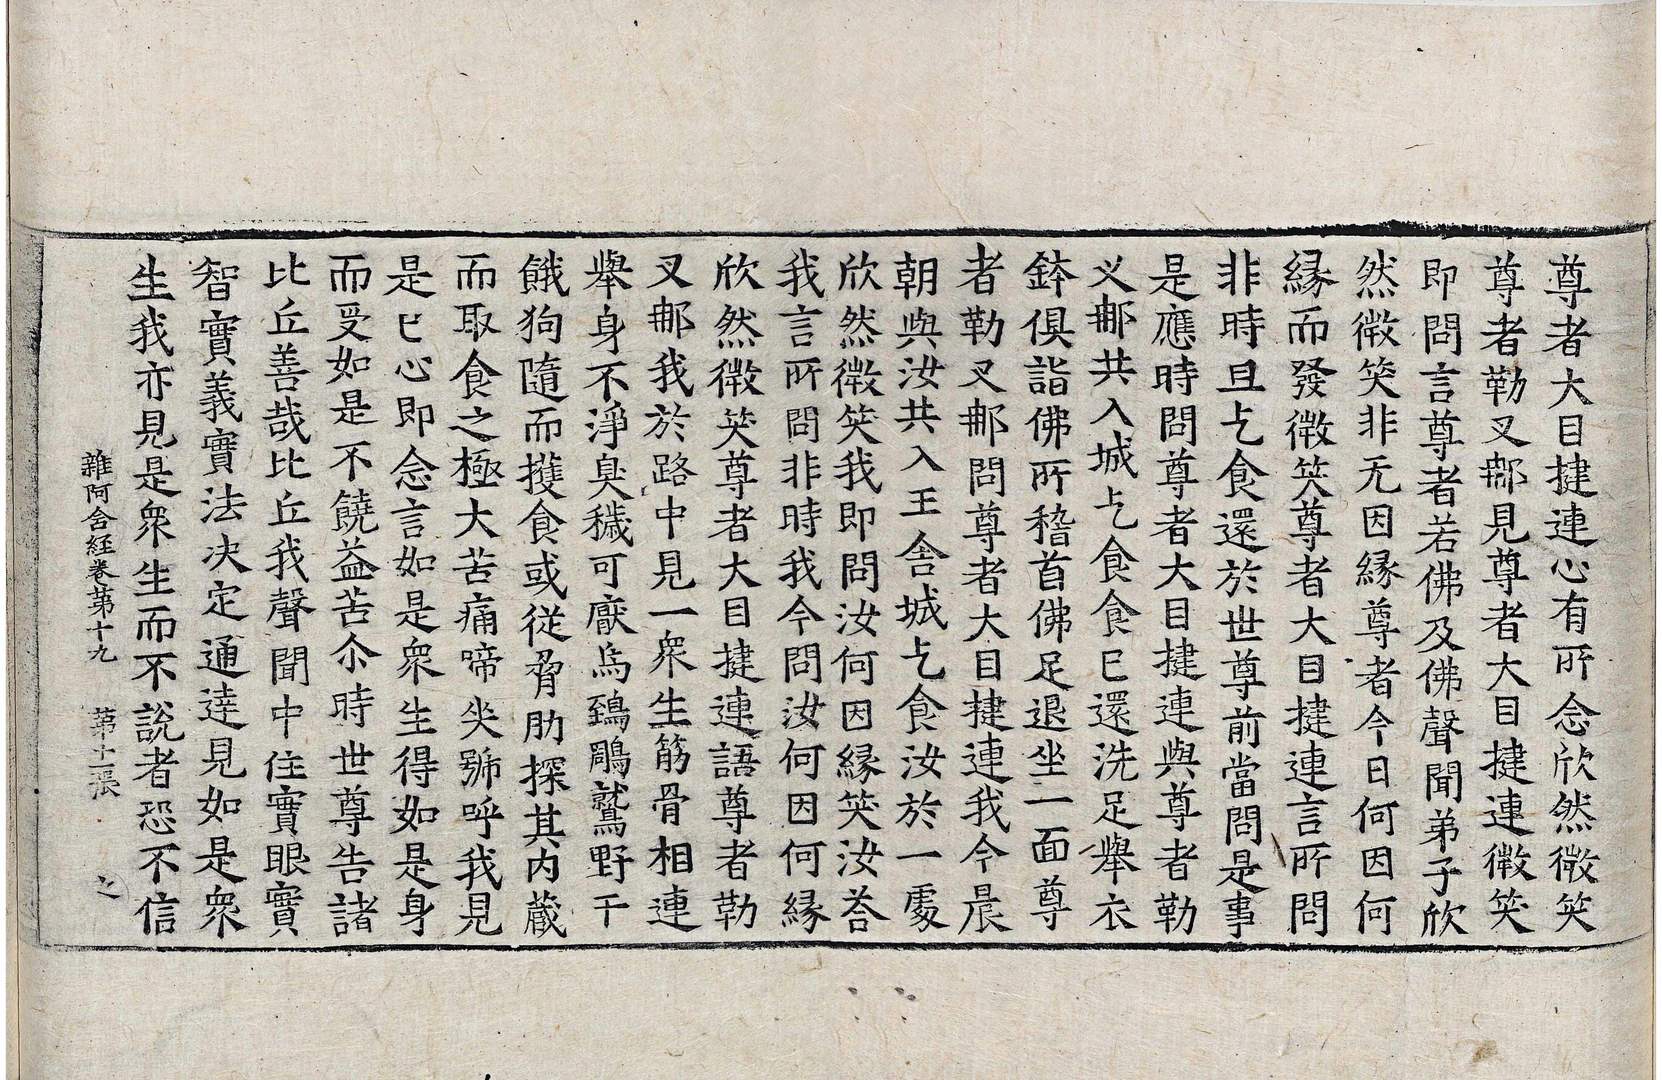 尊者大目揵連心有所念欣然微笑
尊者勒叉那見尊者大目揵連微笑
即問言尊者若佛及佛聲聞弟子欣
然微笑非无因緣尊者今日何因何
緣而發微笑尊者大目揵連言所問
非時且乞食還於世尊前當問是事
是應時問尊者大目揵連與尊者勒
叉那共入城乞食食已還洗足舉衣
鉢俱詣佛所稽首佛足退坐一面尊
者勒叉那問尊者大目揵連我今晨
朝與汝共入王舍城乞食汝於一處
欣然微笑我即問汝何因緣笑汝荅
我言所問非時我今問汝何因何緣
欣然微笑尊者大目揵連語尊者勒
叉那我於路中見一衆生筋骨相連
舉身不淨臭穢可厭烏鵄鵰鷲野干
餓狗隨而攫食或從脅肋探其内藏
而取食之極大苦痛啼哭號呼我見
是已心即念言如是衆生得如是身
而受如是不饒益苦尒時世尊告諸
比丘善哉比丘我聲聞中住實眼實
智實義實法决定通達見如是衆
生我亦見是衆生而不說者恐不信
雜阿含経卷第十九 第十二張 之